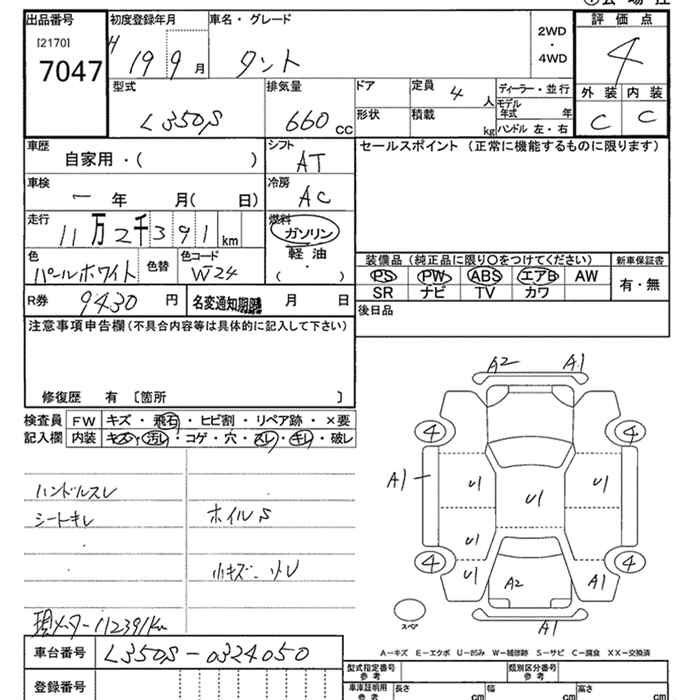 出品番号
[2170]
7047
初度登録年月
H 19 9 月
車名・グレード
タント
2WD
・
4WD
評価点
4
外装 内装
C C
型式
L350S
排気量
660 cc
ドア
形状
定員
4 人
積載
kg
ディーラー・並行
モデル年式 年
ハンドル 左・右
車歴
自家用・( )
シフト
AT
セールスポイント (正常に機能するものに限ります)
車検
ー 年 月( 日)
冷房
AC
走行
11万2千391km
燃料
ガソリン
軽油
( )
色
パールホワイト
色替
色コード
W24
装備品 (純正品に限り〇をつけてください)
PS PW ABS エアB AW
SR ナビ TV カワ
新車保証書
有・無
R券
9430 円
名変通知期限 月 日
後日品
注意事項申告欄(不具合内容等は具体的に記入して下さい)
修復歴 有 〔箇所 〕
検査員
記入欄
FW キズ・飛石・ヒビ割・リペア跡・×要
内装 キズ・汚レ・コゲ・穴・スレ・キレ・破レ
ハンドルスレ
シートキレ
ホイルS
小キズ、リレ
現メーター112391Km
A2 A1
4 4
A1 U1 U1 U1
U1
4 4
U1 A2 A1
スペア
A1
A―キズ E―エクボ U―凹み W―補修跡 S―サビ C―腐食 XX―交換済
車台番号
L350S-0324050
登録番号
型式指定番号
参考
類別区分番号
参考
車庫証明用
参考
長さ cm
幅 cm
高さ cm